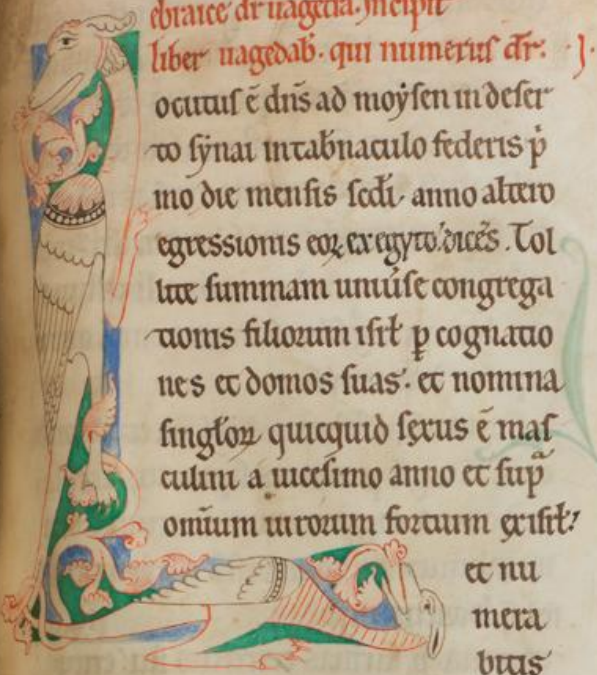 ebraice dr̄ uagetia. Incipit
liber uagedab̄. qui numerus dr̄: .j.
Locutus ē dn̄s ad moẏsen in deser
to sẏnai in tab̄naculo federis p̄
mo die mensis scđi. anno altero
egressionis eoꝝ ex egypto. dicēs. Tol
lite summam uniūse congrega
tionis filiorum isrł ꝑ cognatio
nes et domos suas. et nomina
singłoꝝ quicquid sexus ē mas
culini a uicesimo anno et sup̄
omīum uirorum fortium ex isrł.'
et nu
mera
bitis